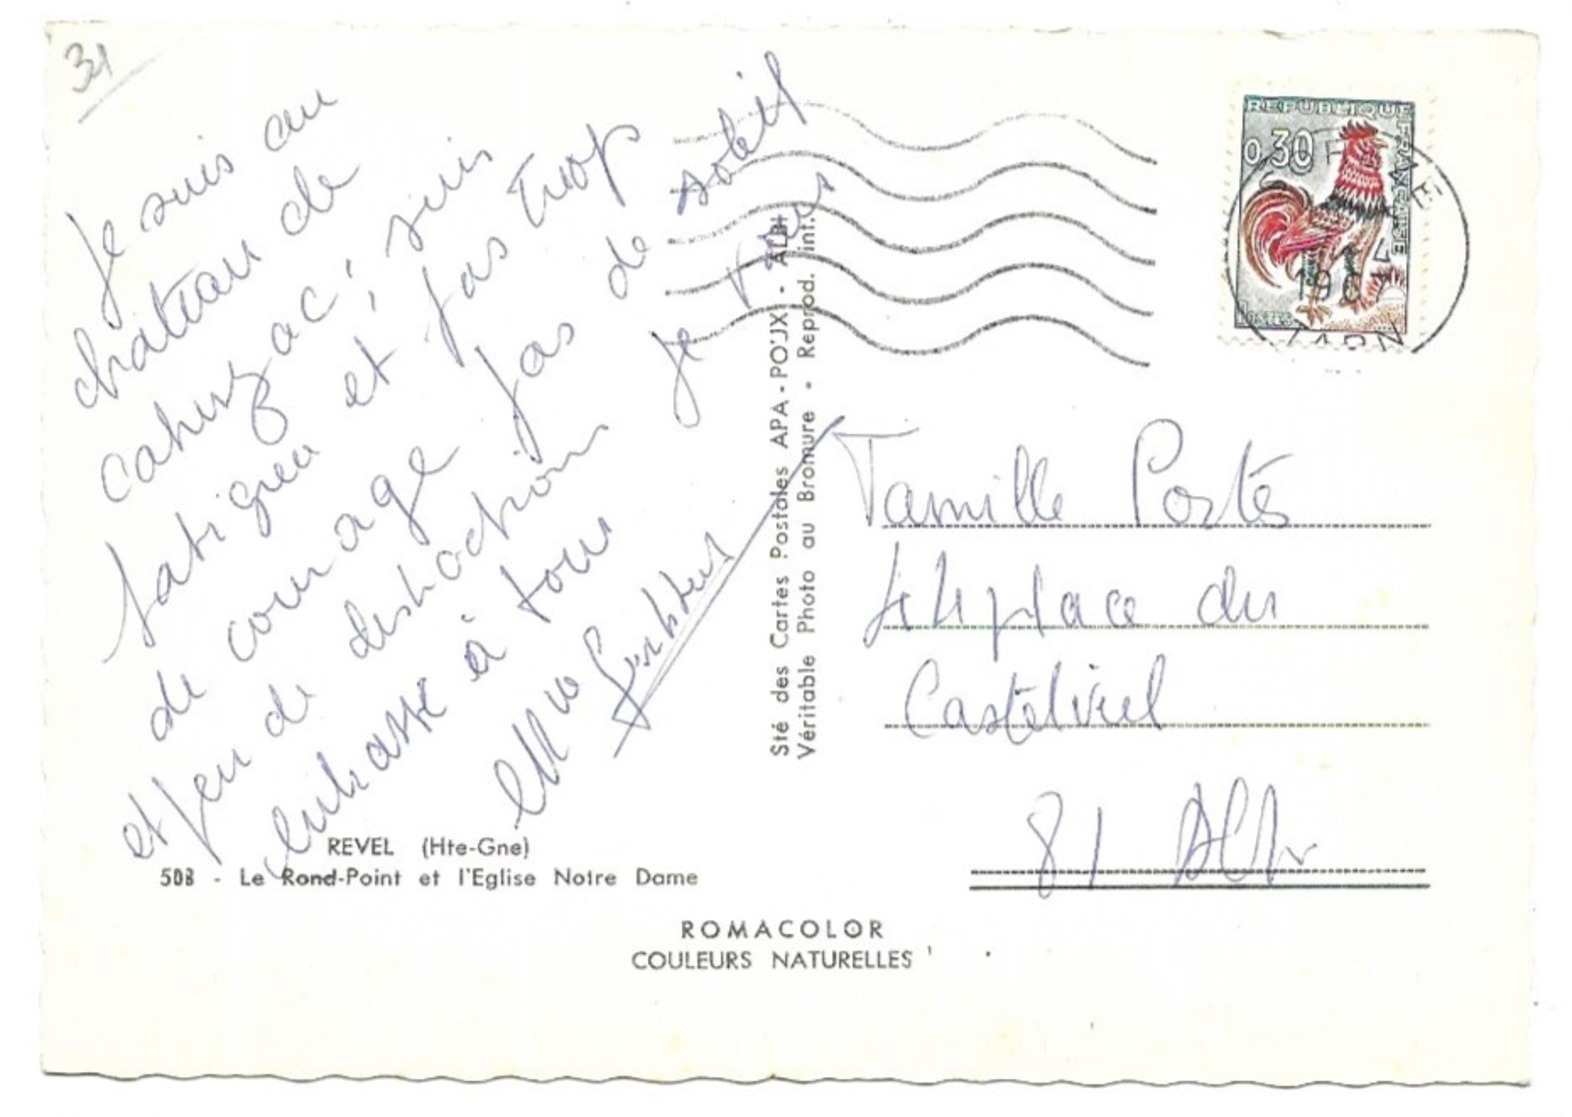 31
Je suis au
chateau de
cahuzac ; suis
fatiguée et pas trop
de courage pas de soleil
et peu de distractions je vous
embrasse à tous
Mme
REVEL (Hte-Gne)
508 - Le Rond-Point et l'Eglise Notre Dame
ROMACOLOR
COULEURS NATURELLES
Sté des Cartes Postales APA - POUX - ALBI
Véritable Photo au Bromure - Reprod. int.
REPUBLIQUE FRANÇAISE
0,30
POSTES
TARN
Famille Portes
place du
Castelviel
81 Albi